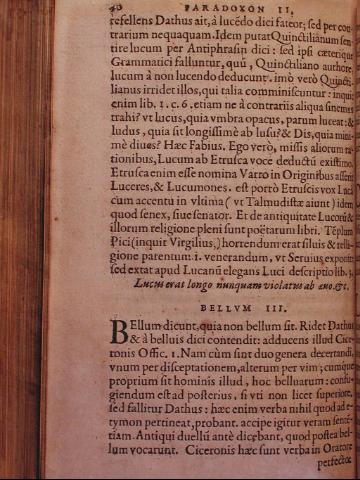 40 PARADOXON II,
refellens Dathus ait, à lucēdo dici fateor; sed per con
trarium nequaquam. Idem putat Quinctilianum sen
tire lucum per Antiphrasin dici: sed ipsi cæterique
Grammatici falluntur, quũ, Quinctiliano authore,
lucum à non lucendo deducunt. imò verò Quincti-
lianus irridet illos, qui talia comminiscuntur: inqui
enim lib. 1. c. 6. etiam ne à contrariis aliqua sinemus
trahi? vt lucus, quia vmbra opacus, parum luceat: &
ludus, quia sit longissimè ab lusu? & Dis, quia mini-
mè diues? Hæc Fabius. Ego verò, missis aliorum ra-
tionibus, Lucum ab Etrusca voce deductũ existimo.
Etrusca enim esse nomina Varro in Originibus asserit
Luceres, & Lucumones. est porrò Etruscis vox Luci
cum accentu in vltima ( vt Talmudistæ aiunt) idem
quod senex, siue senator. Et de antiquitate Lucorũ &
illorum religione pleni sunt poëtarum libri. Tēplum
Pici (inquit Virgilius,) horrendum erat siluis & relli-
gione parentum. i. venerandum, vt Seruius exponit
sed extat apud Lucanũ elegans Luci descriptio lib. 3.
Lucus erat longo nunquam violatus ab æuo. &c.
BELLVM III.
BEllum dicunt, quia non bellum sit. Ridet Dathus
& à belluis dici contendit: adducens illud Cice-
ronis Offic. 1. Nam cùm sint duo genera decertandi,
vnum per disceptationem, alterum per vim; cumque
proprium sit hominis illud, hoc belluarum: confu-
giendum est ad posterius, si vti non licet superiore,
sed fallitur Dathus: hæc enim verba nihil quod ad e-
tymon pertineat, probant. accipe igitur veram senten-
tiam. Antiqui duellũ antè dicebant, quod postea bel-
lum vocarunt. Ciceronis hæc sunt verba in Oratore
perfectos